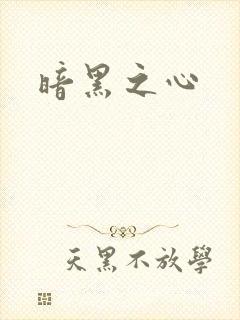 暗黑之心
天黑不放學